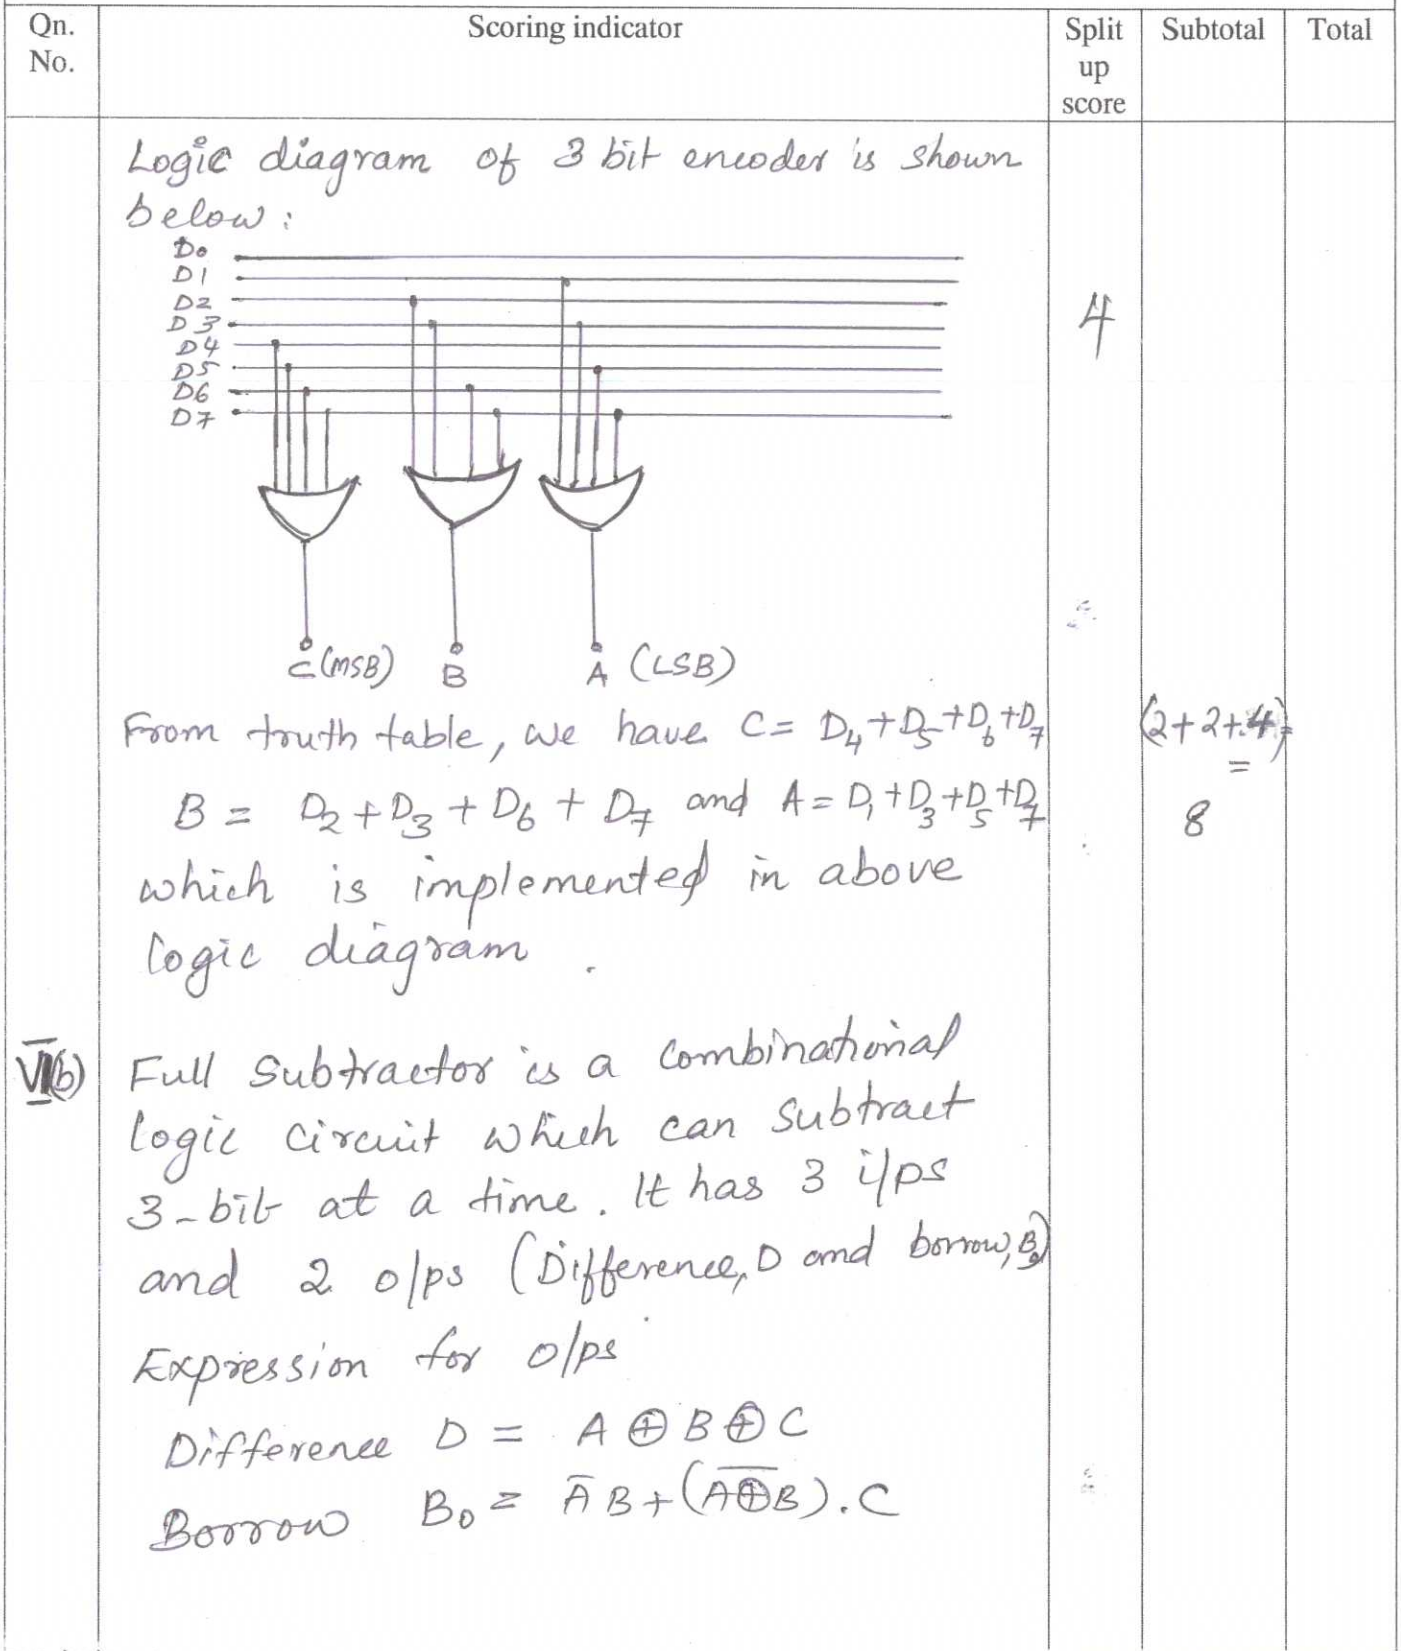 Qn.
No.
Scoring indicator
Split
up
score
Subtotal
Total
Logic diagram of 3 bit encoder is shown
below:
D0
D1
D2
D3
D4
D5
D6
D7
4
C (MSB)
B
A (LSB)
From truth table, we have C = D₄+D₅+D₆+D₇
(2+2+4)
=
8
B = D₂+D₃+D₆+D₇ and A = D₁+D₃+D₅+D₇
which is implemented in above
logic diagram.
VI(b)
Full Subtractor is a Combinational
logic circuit which can subtract
3-bit at a time. It has 3 i/ps
and 2 o/ps (Difference, D and borrow, B₀)
Expression for o/ps
Difference D = A ⊕ B ⊕ C
Borrow B₀ = A̅B + (A̅⊕̅B̅).C